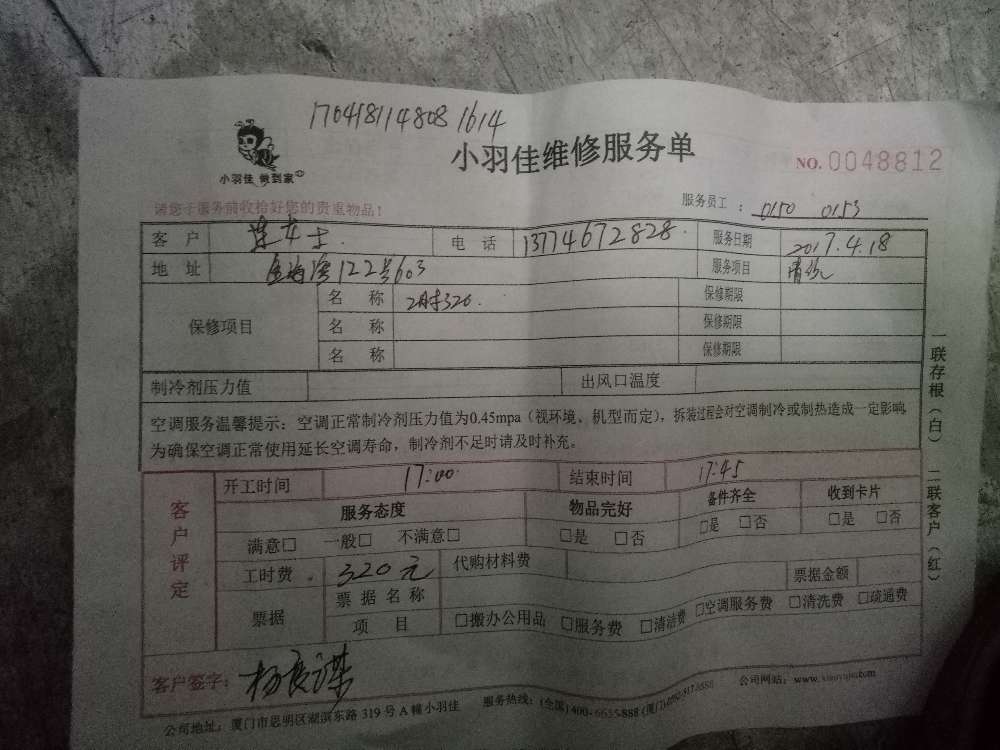 170418114808 1614
小羽佳 做到家
小羽佳维修服务单
NO. 0048812
请您于服务前收拾好您的贵重物品!
服务员工: 0150 0153
客 户 女士 电 话 13774672828 服务日期 2017.4.18
地 址 金海湾122号603 服务项目 清洗
保修项目
名 称 320 保修期限
名 称 保修期限
名 称 保修期限
制冷剂压力值 出风口温度
空调服务温馨提示:空调正常制冷剂压力值为0.45mpa(视环境、机型而定),拆装过程会对空调制冷或制热造成一定影响,
为确保空调正常使用延长空调寿命,制冷剂不足时请及时补充。
一联存根(白) 二联客户(红)
客户评定
开工时间 17:00 结束时间 17:45
服务态度 物品完好 备件齐全 收到卡片
满意□ 一般□ 不满意□ □是 □否 □是 □否 □是 □否
工时费 320元 代购材料费 票据金额
票据 票据名称
项 目 □搬办公用品 □服务费 □清洁费 □空调服务费 □清洗费 □疏通费
客户签字: 杨良谋
公司地址:厦门市思明区湖滨东路 319 号 A 幢小羽佳 服务热线:(全国)400-6655-888 (厦门)0592-517-5555 公司网站:www.xiaoyujia.com